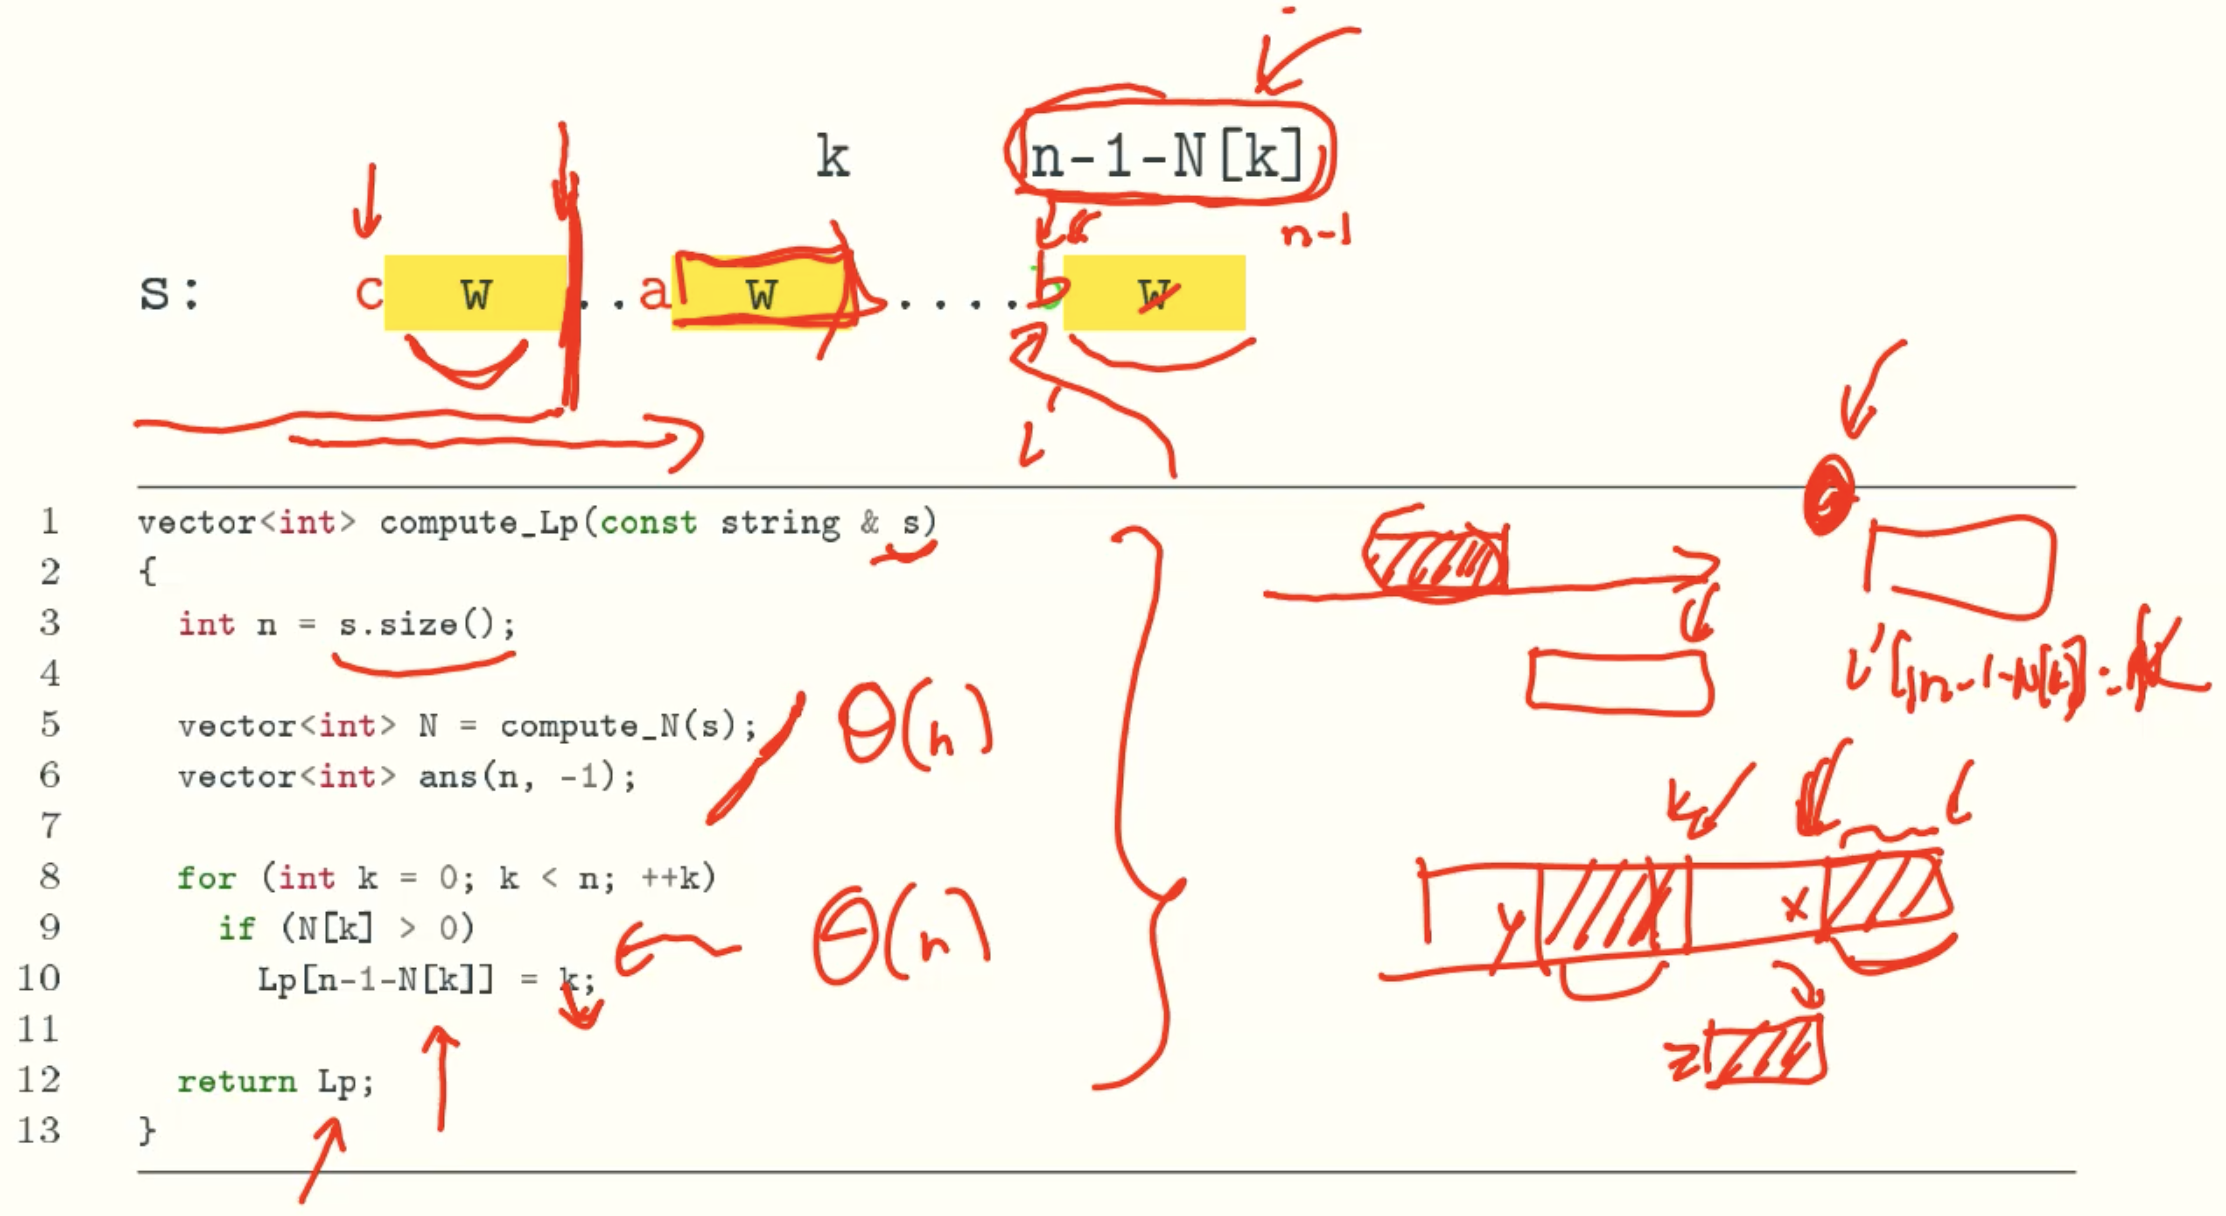 k n-1-N[k]
n-1
s: c w ..a w .....b w
i
1 vector<int> compute_Lp(const string & s)
2 {
3 int n = s.size();
4
5 vector<int> N = compute_N(s);
Θ(n)
6 vector<int> ans(n, -1);
7
8 for (int k = 0; k < n; ++k)
9 if (N[k] > 0)
Θ(n)
10 Lp[n-1-N[k]] = k;
11
12 return Lp;
13 }
k
y x
z